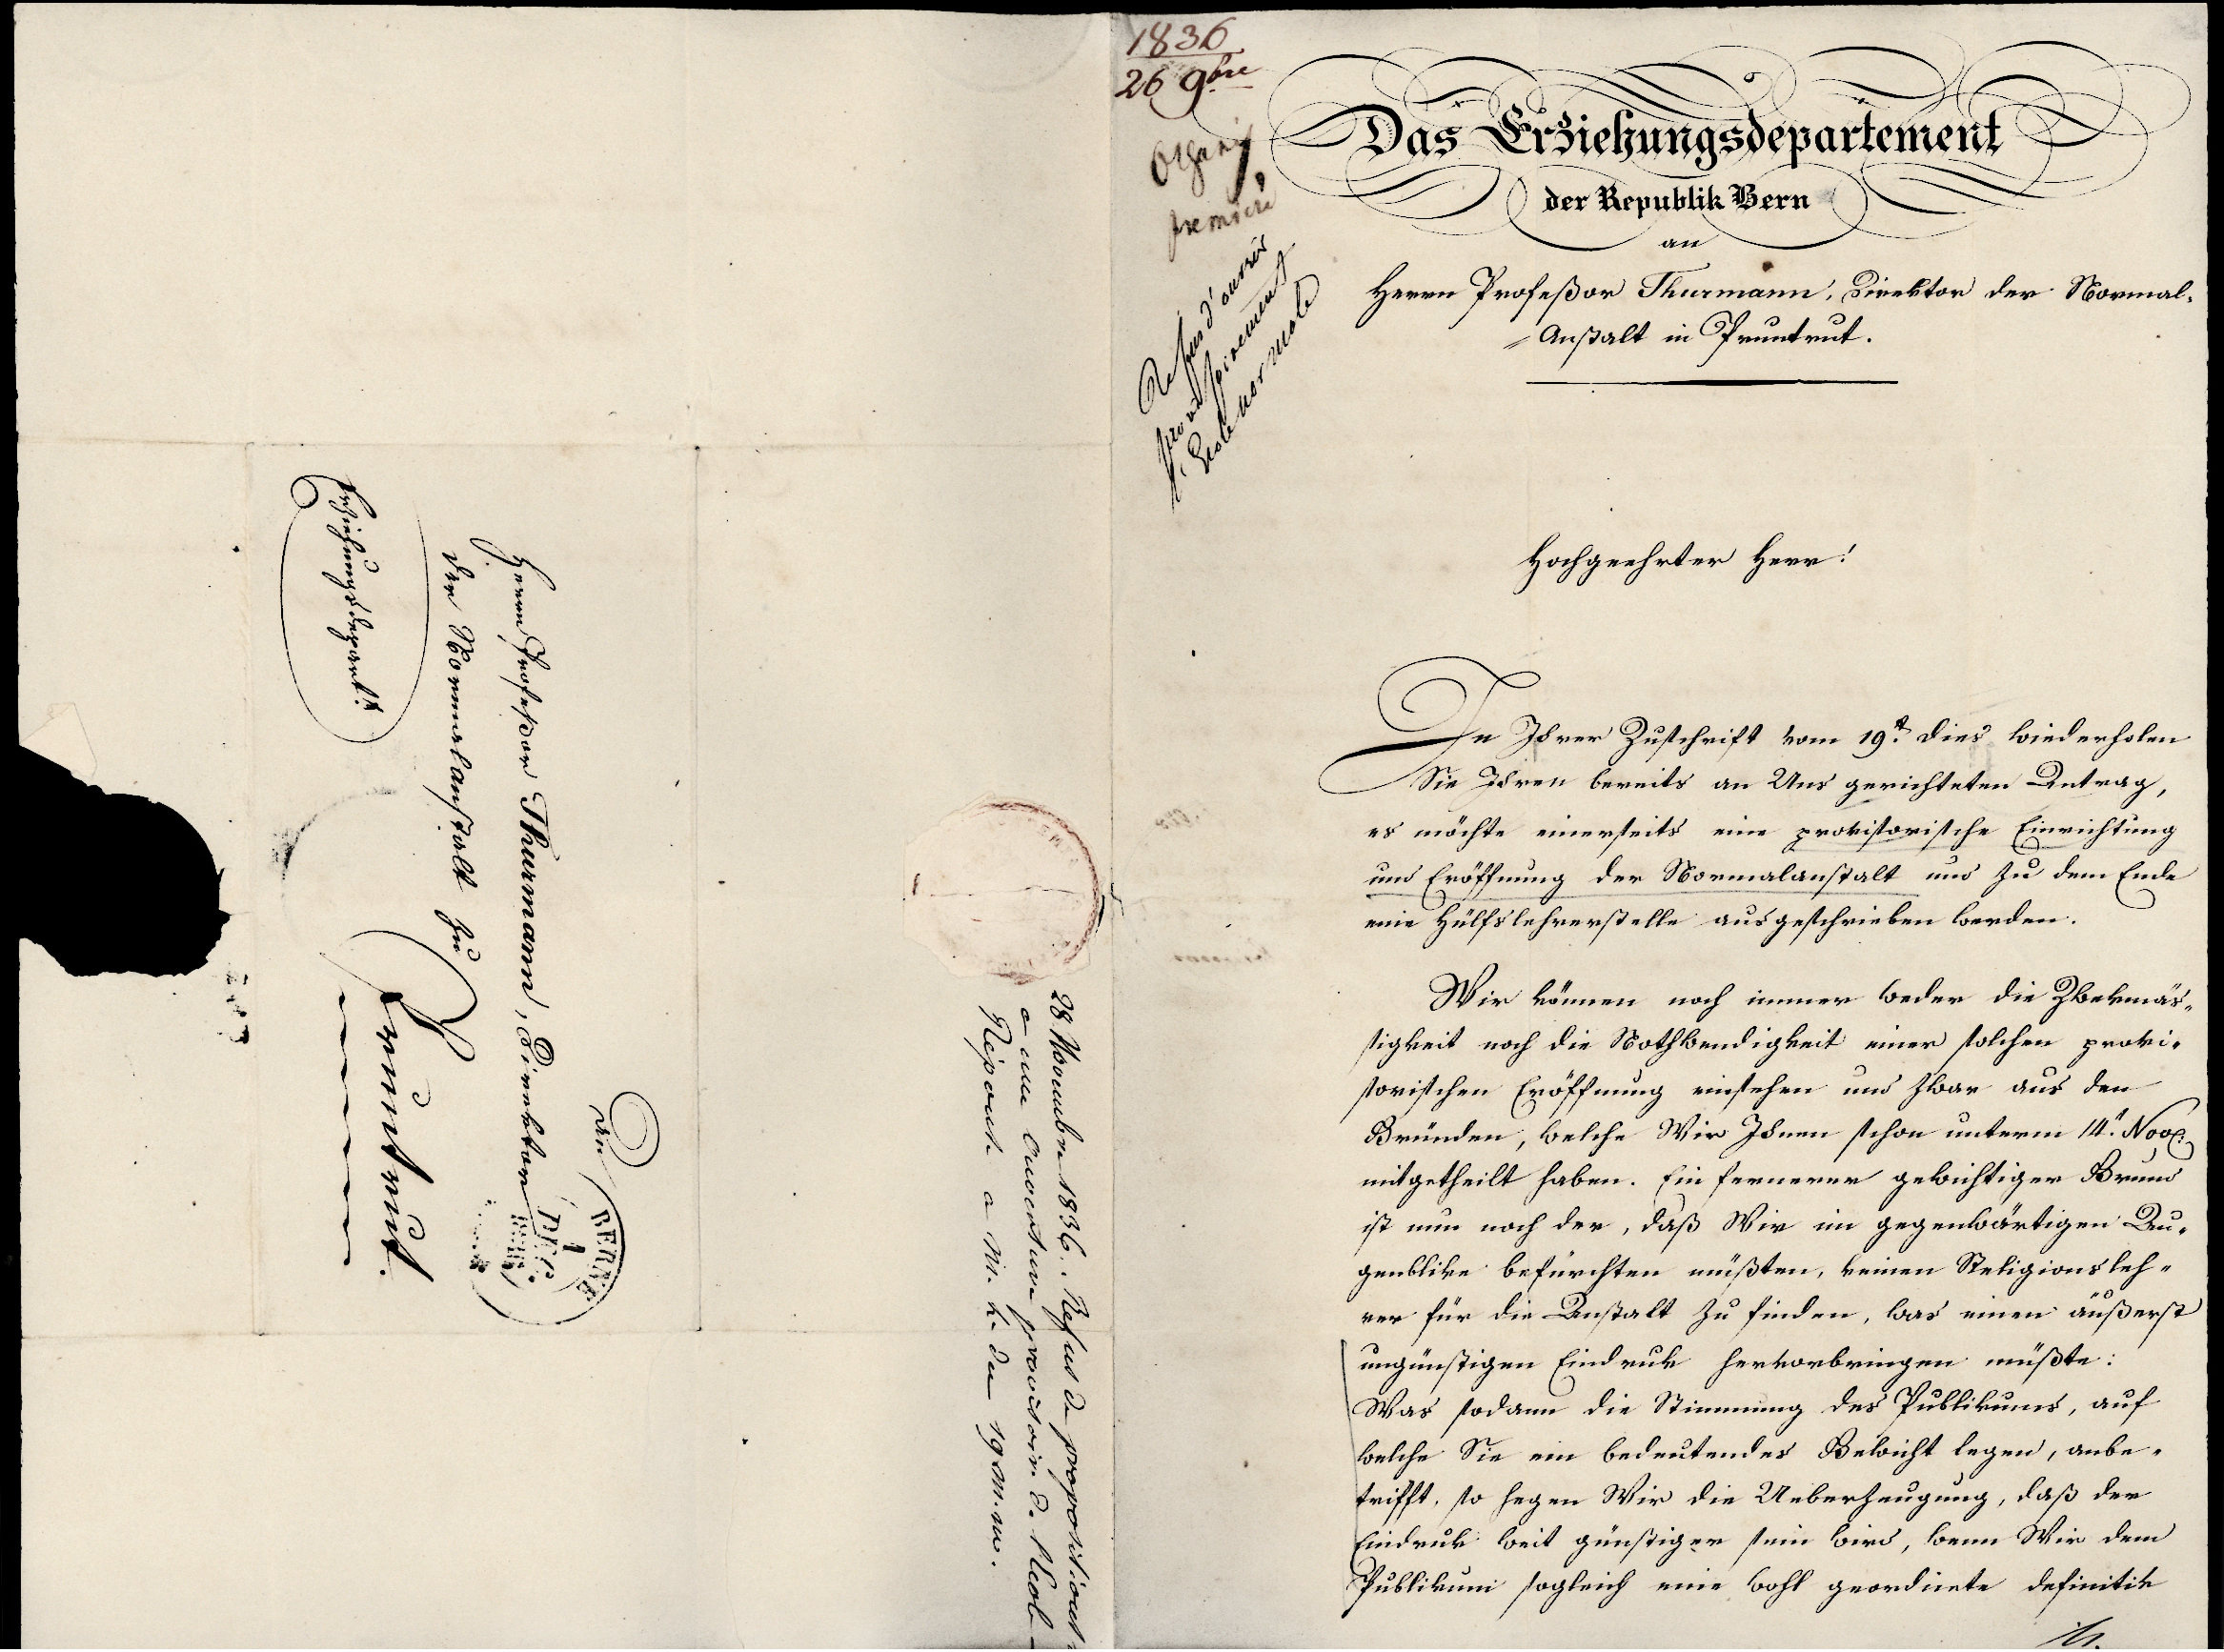 1836
26 9bre
Organis
première
Refus d'ouvrir
provisoirement
l'Ecole normale
Das Erziehungsdepartement
der Republik Bern
an
Herrn Profeßor Thurmann, Direktor der Normal-
Anstalt in Pruntrut.
Hochgeehrter Herr!
In Ihrer Zuschrift vom 19t. dies wiederholen
Sie Ihren bereits an Uns gerichteten Antrag,
es möchte einerseits eine provisorische Einrichtung
und Eröffnung der Normalanstalt und zu dem Ende
eine Hülfslehrerstelle ausgeschrieben werden.
Wir können noch immer weder die Zwekmäs-
sigkeit noch die Nothwendigkeit einer solchen provi-
sorischen Eröffnung einsehen und zwar aus den
Gründen, welche Wir Ihnen schon unterm 14n. Nov.
mitgetheilt haben. Ein fernerer gewichtiger Grund
ist nun noch der, daß Wir im gegenwärtigen Au-
genblike befürchten müßten, keinen Religionsleh-
rer für die Anstalt zu finden, was einen äußerst
ungünstigen Eindruk hervorbringen müßte:
Was sodann die Stimmung des Publikums, auf
welche Sie ein bedeutendes Gewicht legen, anbe-
trifft, so hegen Wir die Ueberzeugung, daß der
Eindruk weit günstiger sein wird, wenn Wir dem
Publikum sogleich eine wohl geordnete definitiv
An
Herrn Profeßor Thurmann, Direktor
der Normalanstalt zu
Pruntrut.
Erziehungsdepart.t
BERNE
1
DEC
28 Novembre 1836. Refus de propositions
a une ouverture provisoire de l'Ecole
Réponse a m. L. du 19 m. m.